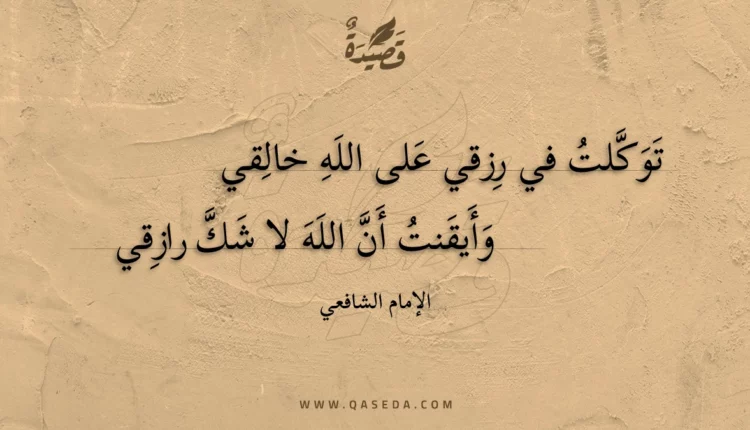 قَصِيدَةٌ
تَوَكَّلتُ في رِزقي عَلى اللَهِ خالِقي
وَأَيقَنتُ أَنَّ اللَهَ لا شَكَّ رازِقي
الإمام الشافعي
WWW.QASEDA.COM